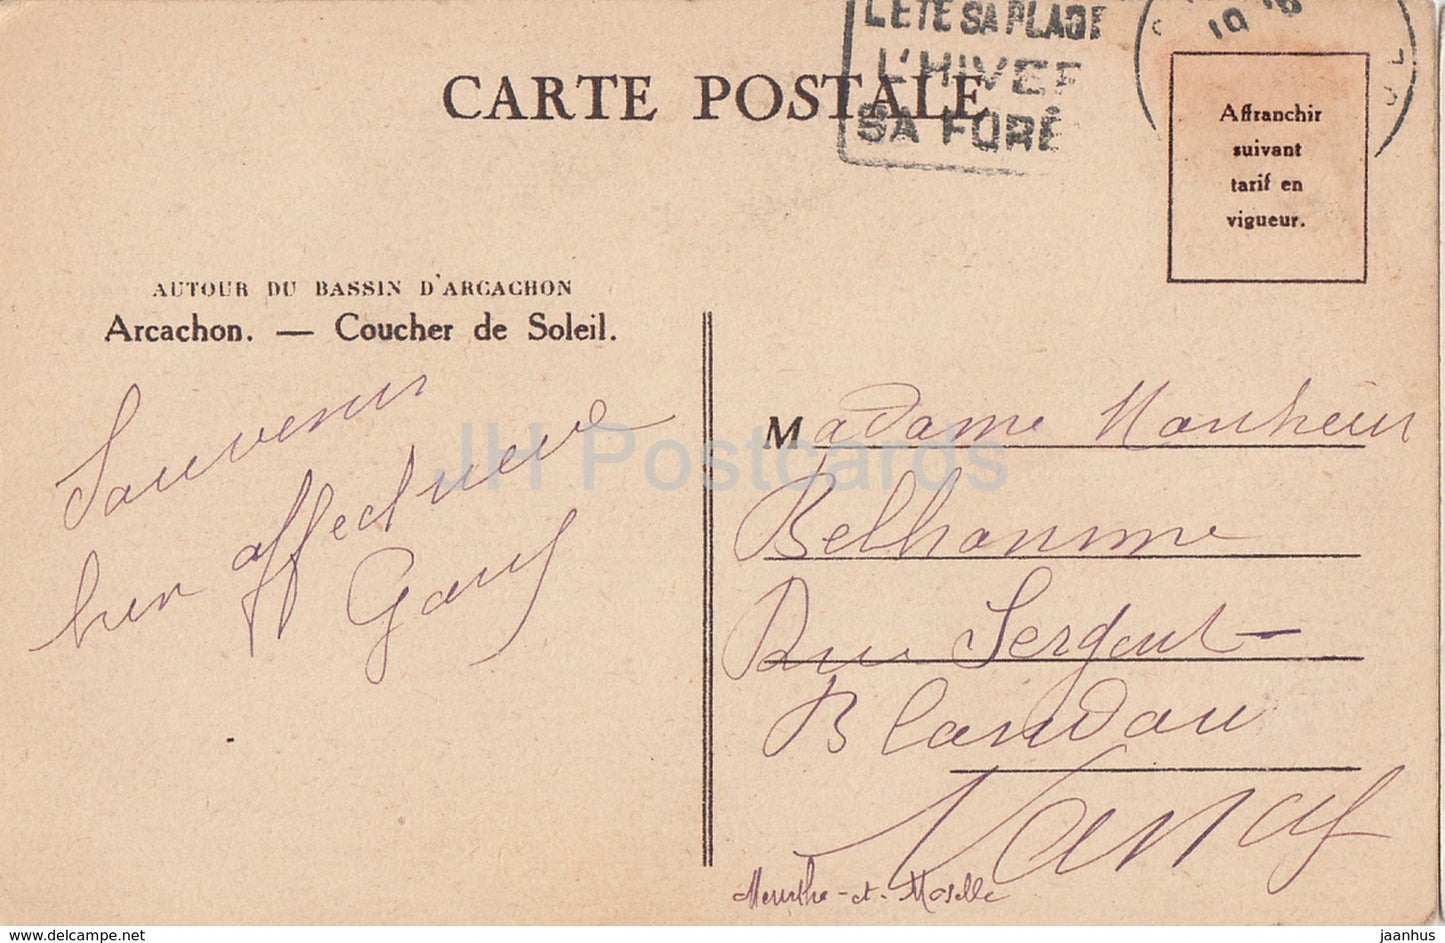 L'ÉTÉ SA PLAGE
L'HIVER
SA FORÊ
CARTE POSTALE
Affranchir
suivant
tarif en
vigueur.
AUTOUR DU BASSIN D'ARCACHON
Arcachon. — Coucher de Soleil.
Souvenir
bien affectueux
Madame
Belhomme
Rue Sergent
Blandan
Nancy
Meurthe-et-Moselle
JH Postcards
www.delcampe.net
jaanhus